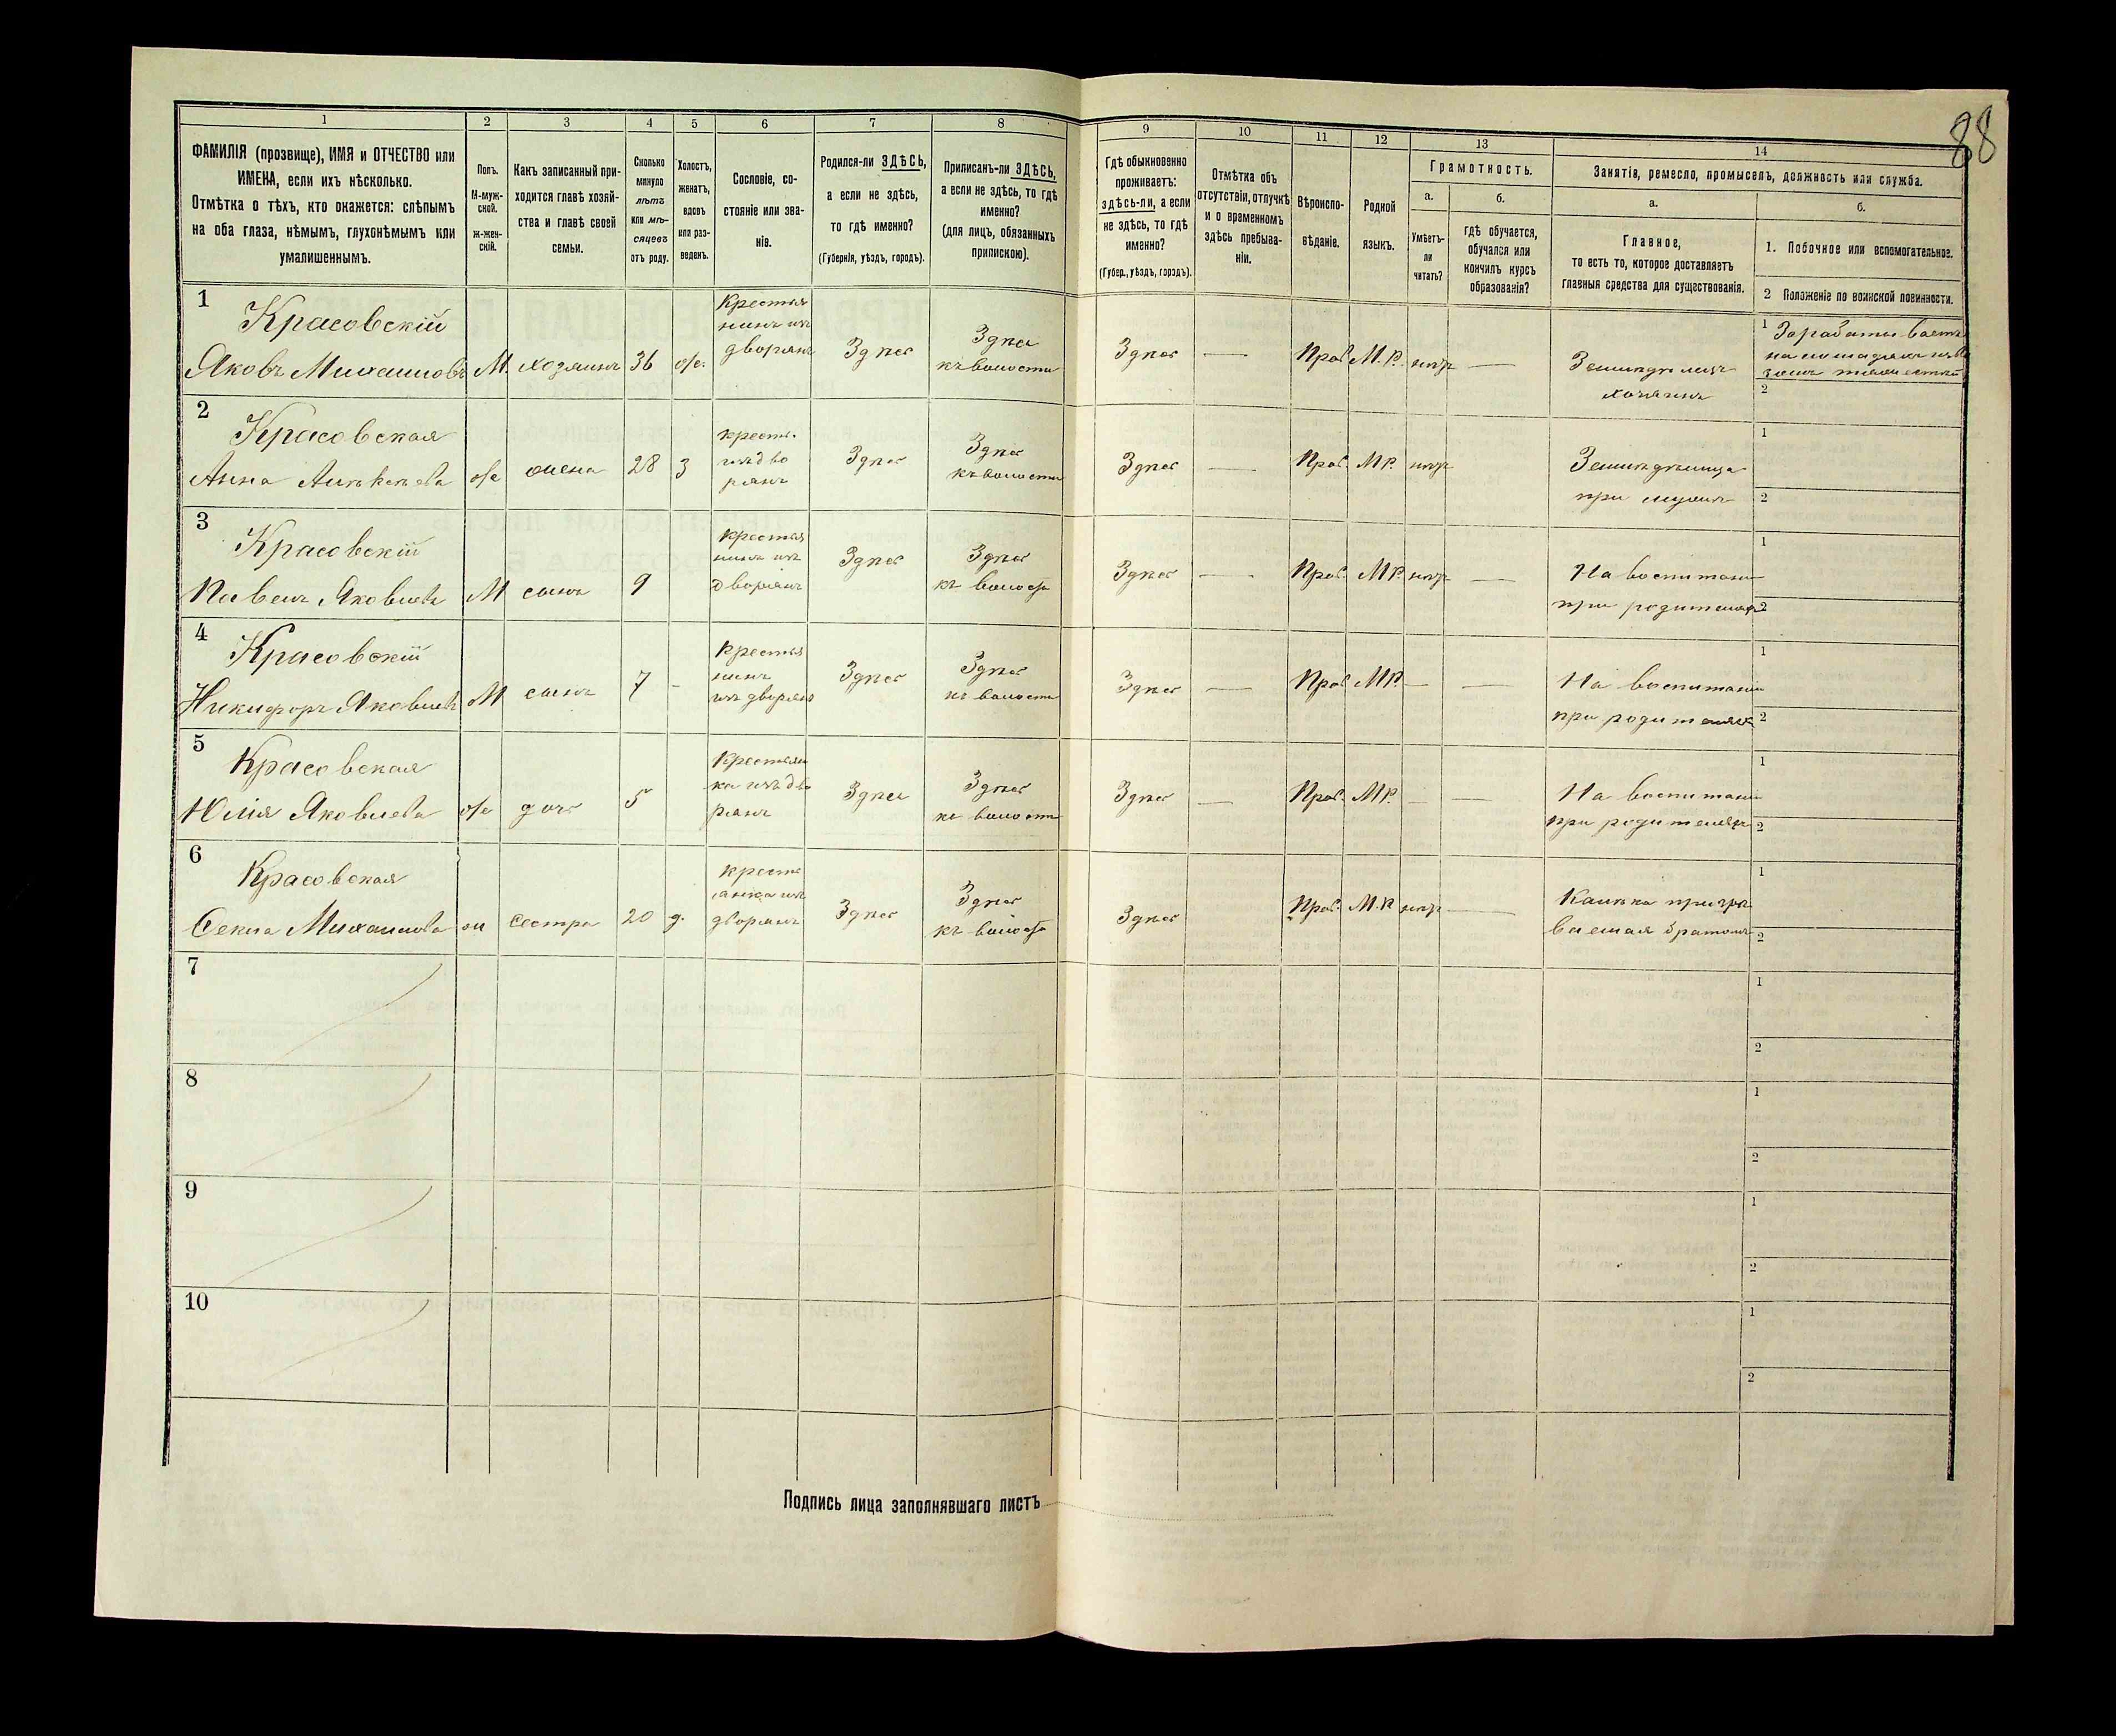 88
1 2 3 4 5 6 7 8 9 10 11 12 13 14
ФАМИЛІЯ (прозвище), ИМЯ и ОТЧЕСТВО или
ИМЕНА, если ихъ нѣсколько.
Отмѣтка о тѣхъ, кто окажется: слѣпымъ
на оба глаза, нѣмымъ, глухонѣмымъ или
умалишеннымъ.
Полъ.
М-муж-
ской.
ж-жен-
скій.
Какъ записанный при-
ходится главѣ хозяй-
ства и главѣ своей
семьи.
Сколько
минуло
лѣтъ
или мѣ-
сяцевъ
отъ роду.
Холостъ,
женатъ,
вдовъ
или раз-
веденъ.
Сословіе, со-
стояніе или зва-
ніе.
Родился-ли ЗДѢСЬ,
а если не здѣсь,
то гдѣ именно?
(Губернія, уѣздъ, городъ).
Приписанъ-ли ЗДѢСЬ,
а если не здѣсь, то гдѣ
именно?
(для лицъ, обязанныхъ
припискою).
Гдѣ обыкновенно
проживаетъ:
здѣсь-ли, а если
не здѣсь, то гдѣ
именно?
(Губер., уѣздъ, городъ).
Отмѣтка объ
отсутствіи, отлучкѣ
и о временномъ
здѣсь пребыва-
ніи.
Вѣроиспо-
вѣданіе.
Родной
языкъ.
Грамотность.
а.
Умѣетъ-
ли
читать?
б.
гдѣ обучается,
обучался или
кончилъ курсъ
образованія?
Занятіе, ремесло, промыселъ, должность или служба.
а.
Главное,
то есть то, которое доставляетъ
главныя средства для существованія.
б.
1. Побочное или вспомогательное.
2 Положеніе по воинской повинности.
1
Красовскій
Яковъ Михаиловъ М. хозяинъ 36 ж.
Крестья
нинъ изъ
дворянъ
Здѣсь
Здѣсь
къ волости
Здѣсь — Прав. М. Р. нѣтъ —
Земледѣлецъ
хозяинъ
1
2
2
Красовская
Анна ж жена 28 З
крестья.
изъ дво
рянъ
Здѣсь
Здѣсь
къ волости
Здѣсь — Прав. М.Р. нѣтъ
Земледѣлица
при мужѣ
1
2
3
Красовскій
Павелъ Яковлевъ М сынъ 9
крестья
нинъ изъ
дворянъ
Здѣсь
Здѣсь
къ волости
Здѣсь — Прав. М.Р. нѣтъ —
На воспитании
при родителяхъ
1
2
4
Красовскій
Никифоръ Яковлевъ М сынъ 7 -
Крестья
нинъ
изъ дворянъ
Здѣсь
Здѣсь
къ волости
Здѣсь — Прав М.Р. — —
На воспитании
при родителяхъ
1
2
5
Красовская
Юлія Яковлева ж дочь 5
Крестьян
ка изъ дво
рянъ
Здѣсь
Здѣсь
къ волости
Здѣсь — Прав. М.Р. — —
На воспитании
при родителяхъ
1
2
6
Красовская
Михаилова ж сестра 20 д.
кресть
янка изъ
дворянъ
Здѣсь
Здѣсь
къ волости
Здѣсь Прав. М.Р. нѣтъ —
Калѣка призрѣ
ваемая братомъ
1
2
7
1
2
8
1
2
9
1
2
10
1
2
Подпись лица заполнявшаго листъ